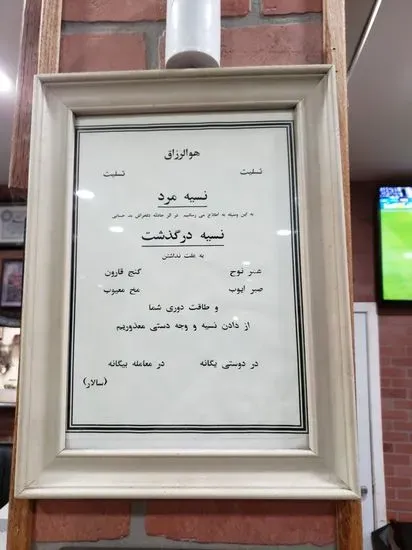 هوالرزاق
تسلیت تسلیت
نسیه مرد
به این وسیله به اطلاع می رسانید در اثر حادثه دلخراش بد حسابی
نسیه درگذشت
به علت نداشتن
عمر نوح گنج قارون
صبر ایوب مخ معیوب
و طاقت دوری شما
از دادن نسیه و وجه دستی معذوریم
در دوستی یگانه در معامله بیگانه
(سالار)